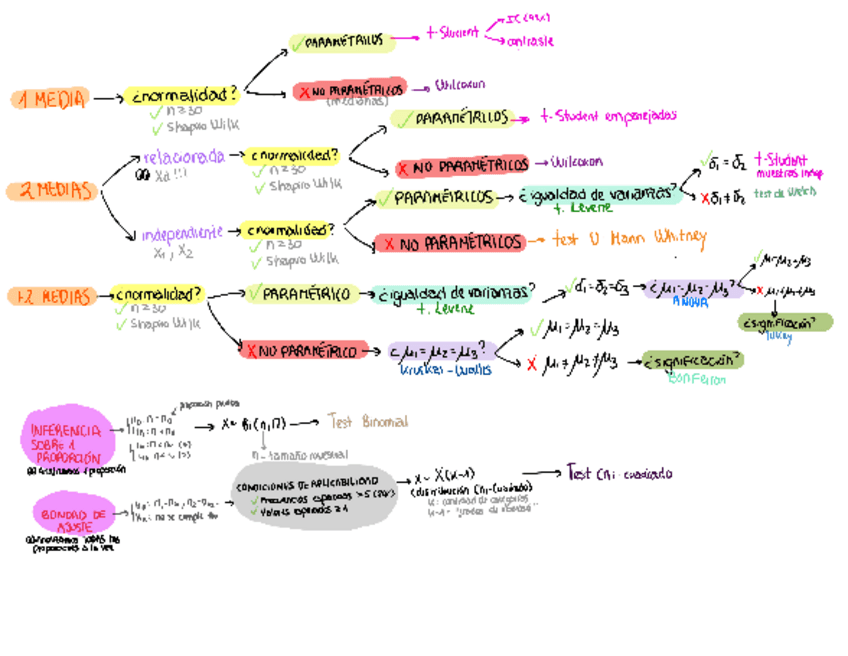 ✓ PARAMÉTRICOS → t-Student
IC (95%)
contraste
1 MEDIA → ¿normalidad?
✓ n≥30
✓ Shapiro Wilk
X NO PARAMÉTRICOS → Wilcoxon
(medianas)
2 MEDIAS
relacionada → ¿normalidad?
Xd !!!
✓ n≥30
✓ Shapiro Wilk
✓ PARAMÉTRICOS → t-Student emparejadas
X NO PARAMÉTRICOS → Wilcoxon
independiente → ¿normalidad?
X₁, X₂
✓ n≥30
✓ Shapiro Wilk
✓ PARAMÉTRICOS → ¿igualdad de varianzas?
t. Levene
✓ σ₁ = σ₂ t-Student
muestras indep
X σ₁ ≠ σ₂ test de Welch
X NO PARAMÉTRICOS → test U Mann Whitney
+2 MEDIAS → ¿normalidad?
✓ n≥30
✓ Shapiro Wilk
✓ PARAMÉTRICO → ¿igualdad de varianzas?
t. Levene
✓ σ₁=σ₂=σ₃ → ¿μ₁=μ₂=μ₃?
ANOVA
✓ μ₁=μ₂=μ₃
X μ₁≠μ₂≠μ₃
¿significación?
Tukey
X NO PARAMÉTRICO → ¿μ₁=μ₂=μ₃?
Kruskal-Wallis
✓ μ₁=μ₂=μ₃
X μ₁≠μ₂≠μ₃ → ¿significación?
Bonferron
INFERENCIA
SOBRE 1
PROPORCIÓN
proporción
X~Bi(n,Π) → Test Binomial
n = tamaño muestral
BONDAD DE
AJUSTE
CONDICIONES DE APLICABILIDAD
✓ Frecuencias esperadas >5 (80%)
✓ valores esperados ≥1
X~X(K-1)
(distribución Chi-cuadrado)
K = cantidad de categorías
K-1 = grados de libertad
Test Chi-cuadrado